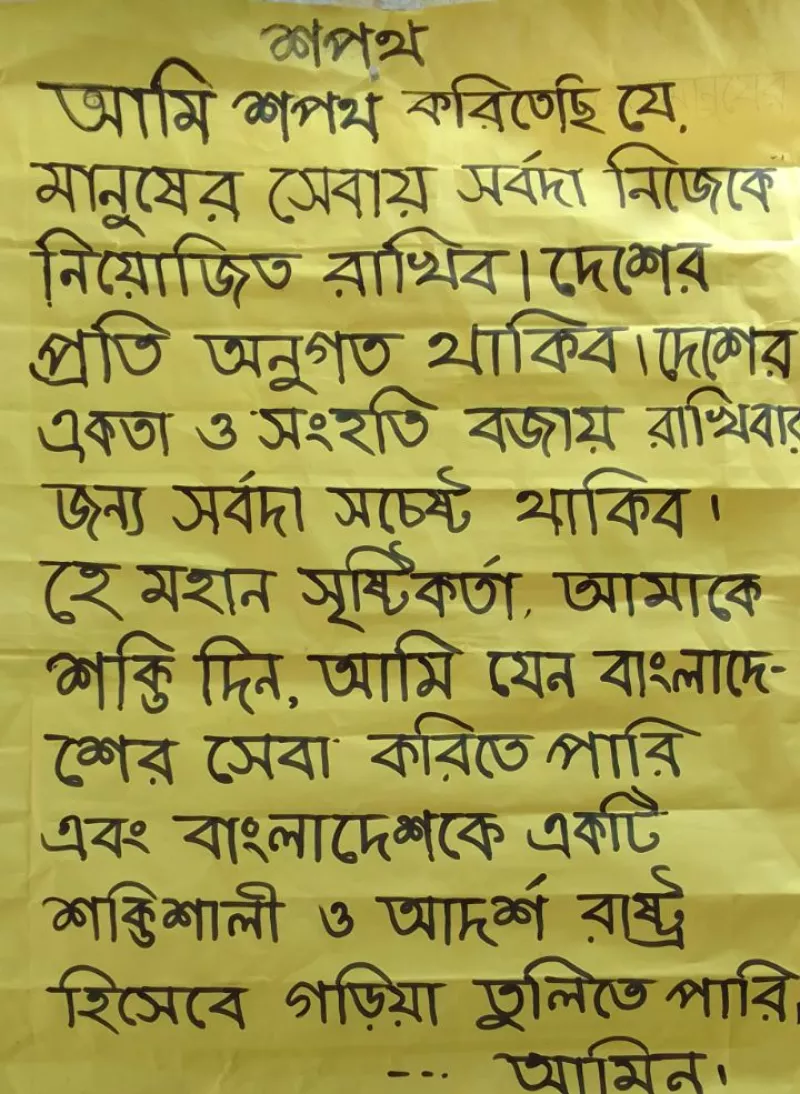 শপথ
আমি শপথ করিতেছি যে,
মানুষের সেবায় সর্বদা নিজেকে
নিয়োজিত রাখিব। দেশের
প্রতি অনুগত থাকিব। দেশের
একতা ও সংহতি বজায় রাখিবার
জন্য সর্বদা সচেষ্ট থাকিব।
হে মহান সৃষ্টিকর্তা, আমাকে
শক্তি দিন, আমি যেন বাংলাদে-
শের সেবা করিতে পারি
এবং বাংলাদেশকে একটি
শক্তিশালী ও আদর্শ রাষ্ট্র
হিসেবে গড়িয়া তুলিতে পারি,
--- আমিন।